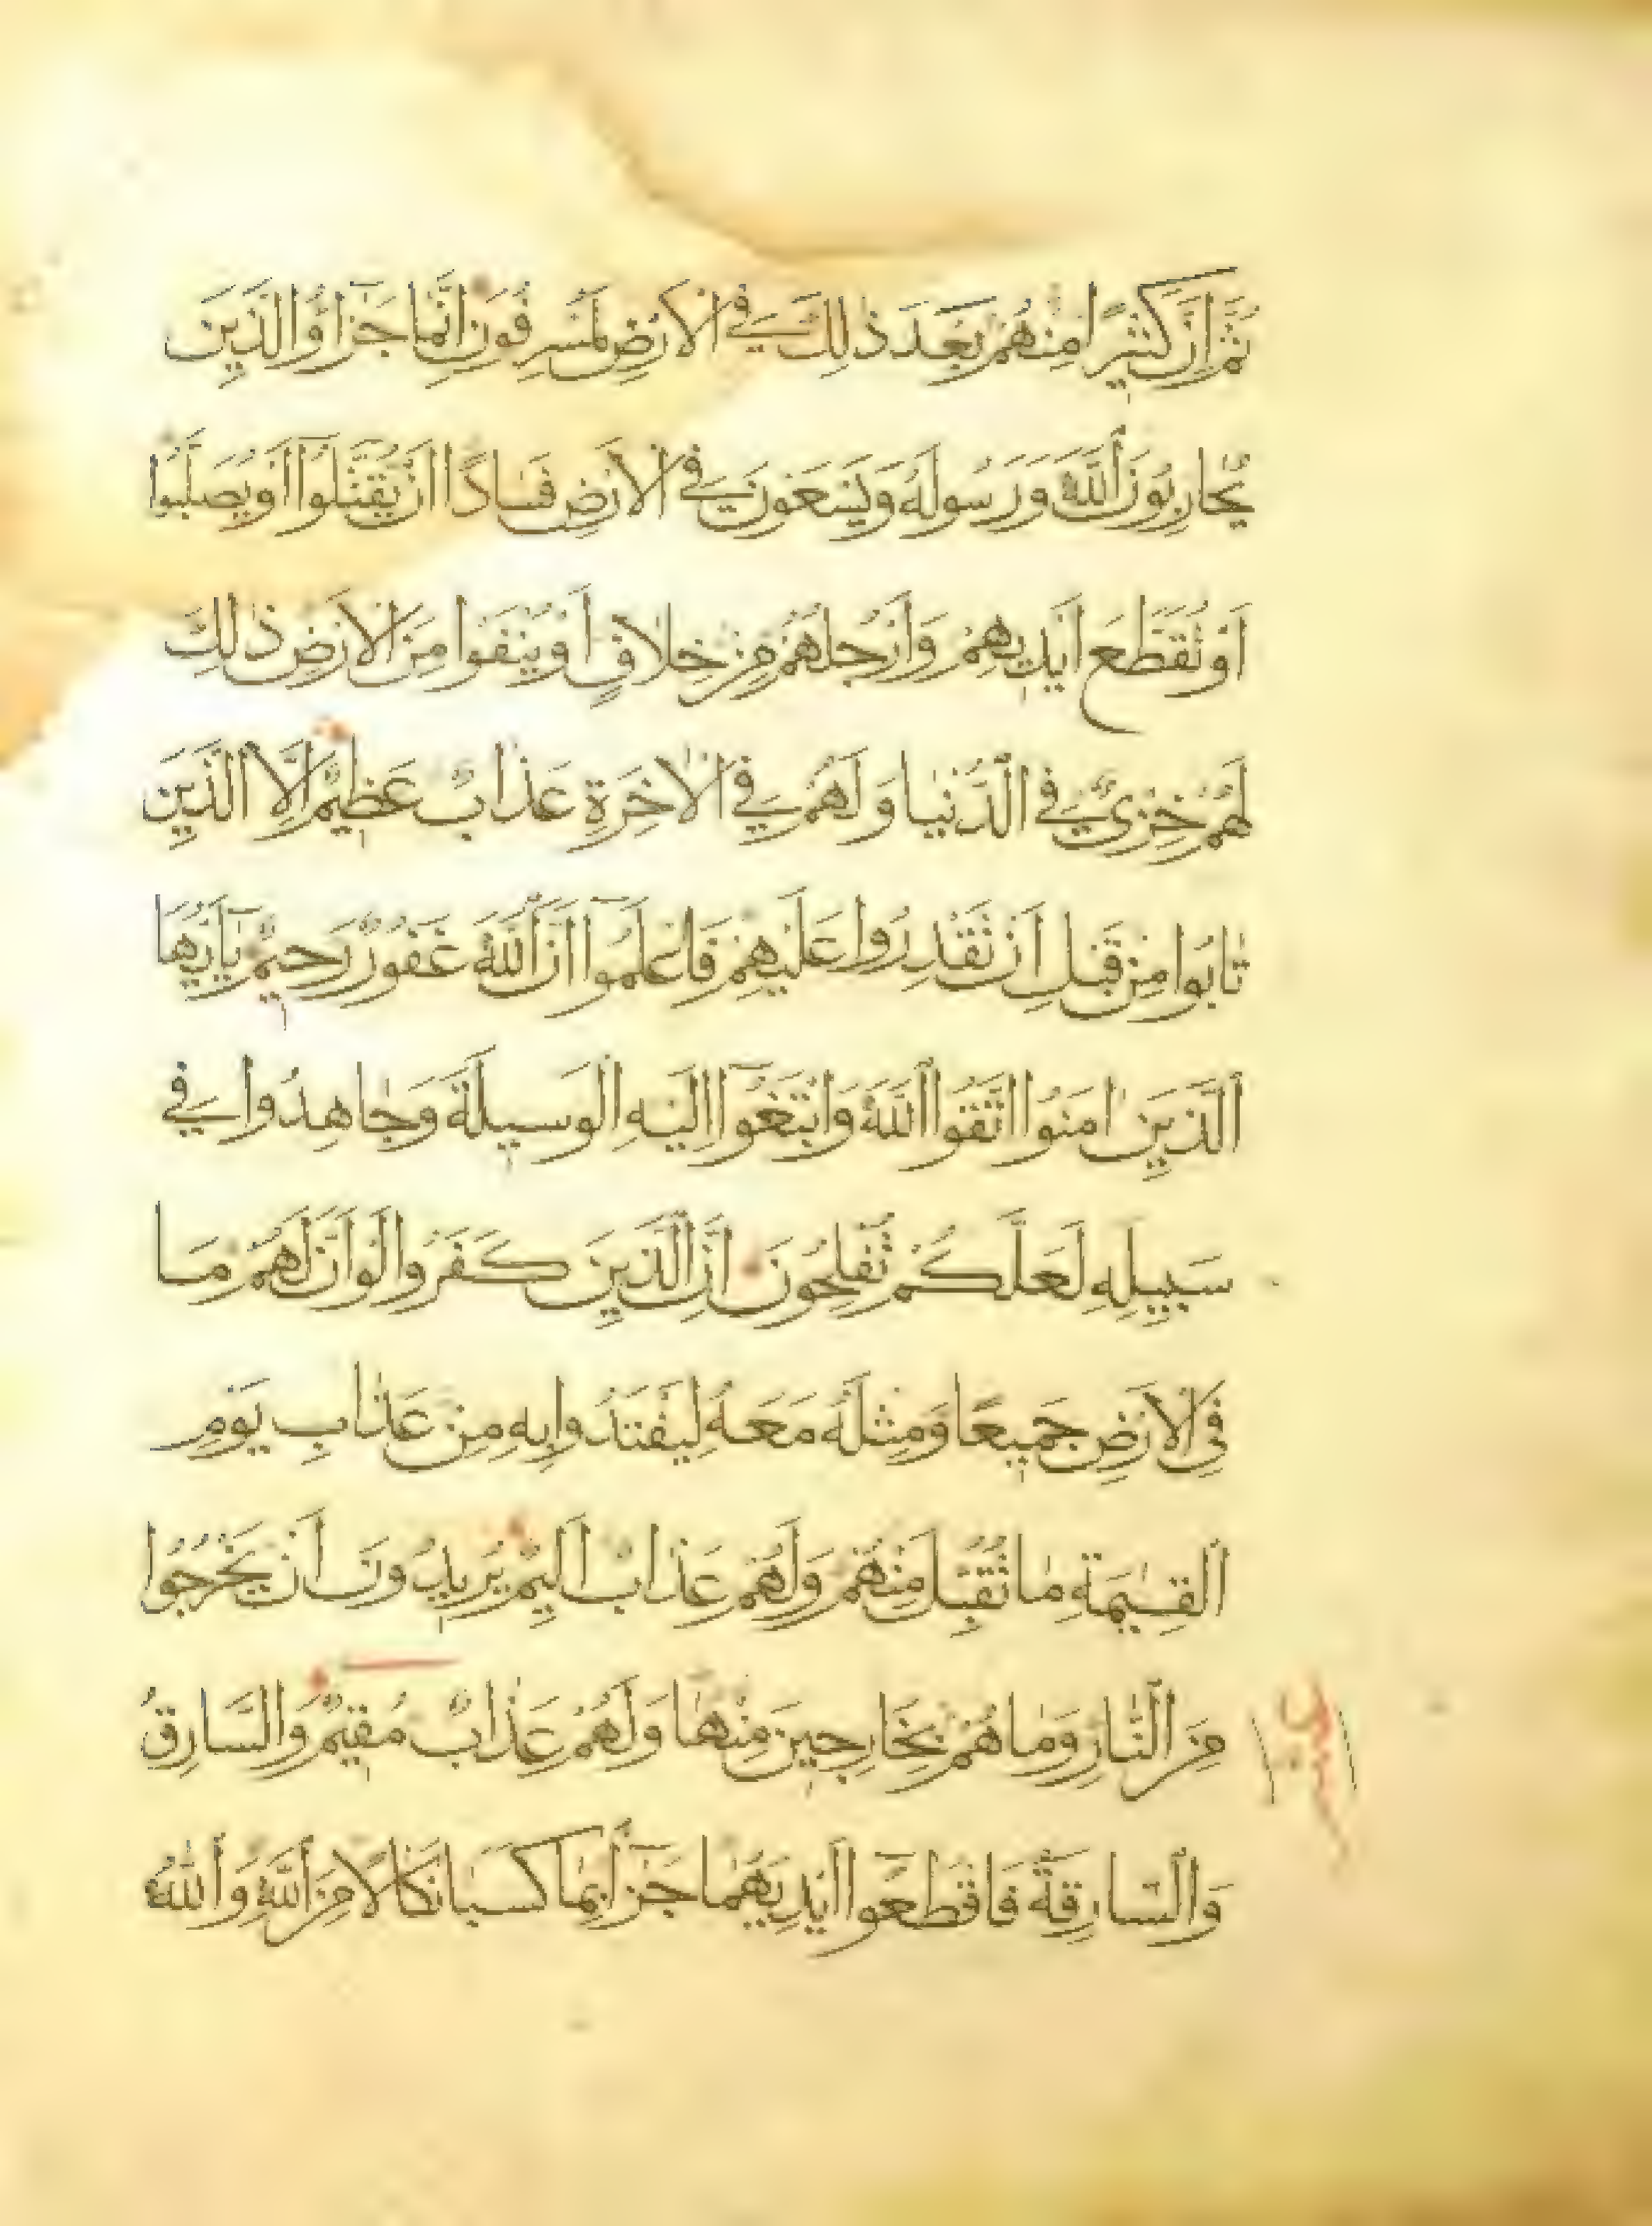 ثُمَّ اِنَّ كَثِيرًا مِنْهُمْ بَعْدَ ذٰلِكَ فِي الْاَرْضِ لَمُسْرِفُونَ اِنَّمَا جَزٰٓؤُا الَّذِينَ
يُحَارِبُونَ اللّٰهَ وَرَسُولَهُ وَيَسْعَوْنَ فِي الْاَرْضِ فَسَادًا اَنْ يُقَتَّلُوٓا اَوْ يُصَلَّبُوٓا
اَوْ تُقَطَّعَ اَيْدِيهِمْ وَاَرْجُلُهُمْ مِنْ خِلَافٍ اَوْ يُنْفَوْا مِنَ الْاَرْضِ ذٰلِكَ
لَهُمْ خِزْيٌ فِي الدُّنْيَا وَلَهُمْ فِي الْاٰخِرَةِ عَذَابٌ عَظِيمٌ اِلَّا الَّذِينَ
تَابُوا مِنْ قَبْلِ اَنْ تَقْدِرُوا عَلَيْهِمْ فَاعْلَمُوٓا اَنَّ اللّٰهَ غَفُورٌ رَحِيمٌ يٰٓاَيُّهَا
الَّذِينَ اٰمَنُوا اتَّقُوا اللّٰهَ وَابْتَغُوٓا اِلَيْهِ الْوَسِيلَةَ وَجَاهِدُوا فِي
سَبِيلِهِ لَعَلَّكُمْ تُفْلِحُونَ اِنَّ الَّذِينَ كَفَرُوا لَوْ اَنَّ لَهُمْ مَا
فِي الْاَرْضِ جَمِيعًا وَمِثْلَهُ مَعَهُ لِيَفْتَدُوا بِهِ مِنْ عَذَابِ يَوْمِ
الْقِيٰمَةِ مَا تُقُبِّلَ مِنْهُمْ وَلَهُمْ عَذَابٌ اَلِيمٌ يُرِيدُونَ اَنْ يَخْرُجُوا
مِنَ النَّارِ وَمَا هُمْ بِخَارِجِينَ مِنْهَا وَلَهُمْ عَذَابٌ مُقِيمٌ وَالسَّارِقُ
وَالسَّارِقَةُ فَاقْطَعُوٓا اَيْدِيَهُمَا جَزَٓاءً بِمَا كَسَبَا نَكَالًا مِنَ اللّٰهِ وَاللّٰهُ